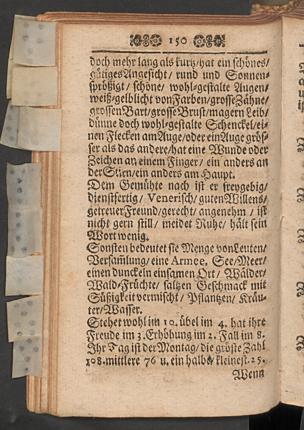 150
doch mehr lang als kurtz/hat ein schönes/
gütiges Angesicht / rund und Sonnen-
sproßigt / schöne / wohl-gestalte Augen/
weiß-gelblicht von Farben/grosse Zähne/
grossen Bart/grosse Brust/magern Leib/
dünne doch wohl-gestalte Schenckel/ei-
nen Flecken am Auge/oder ein Auge gröss-
ser als das andere/hat eine Wunde oder
Zeichen an einem Finger / ein anders an
der Stirn/ein anders am Haupt.
Dem Gemühte nach ist er freygebig/
dienstfertig / Venerisch/ guten Willens/
getreuer Freund/gerecht/ angenehm / ist
nicht gern still / meidet Ruhe/ hält sein
Wort wenig.
Sonsten bedeutet sie Menge von Leuten/
Versamlung/eine Armee. See/Meer/
einen dunckeln einsamen Ort / Wälder/
Wald-Früchte/ saltzen Geschmack mit
Süßigkeit vermischt / Pflantzen/ Kräu-
ter/Wasser.
Stehet wohl im 10. übel im 4. hat ihre
Freude im 3. Erhöhung im 2. Fall im 8.
Ihr Tag ist der Montag/ die gröste Zahl
108. mittlere 76 u. ein halbe/ kleinest. 25.
Wenn